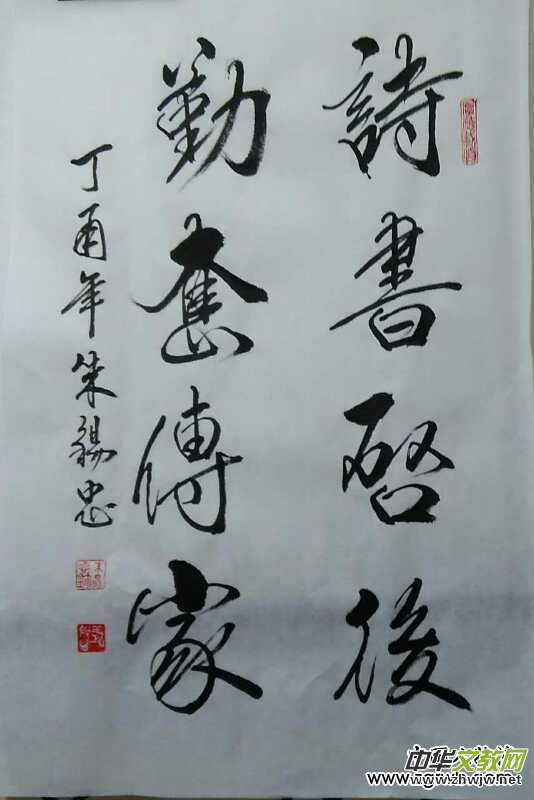 詩書啓後
勤奮傳家
丁酉年朱錫忠
中华文教网